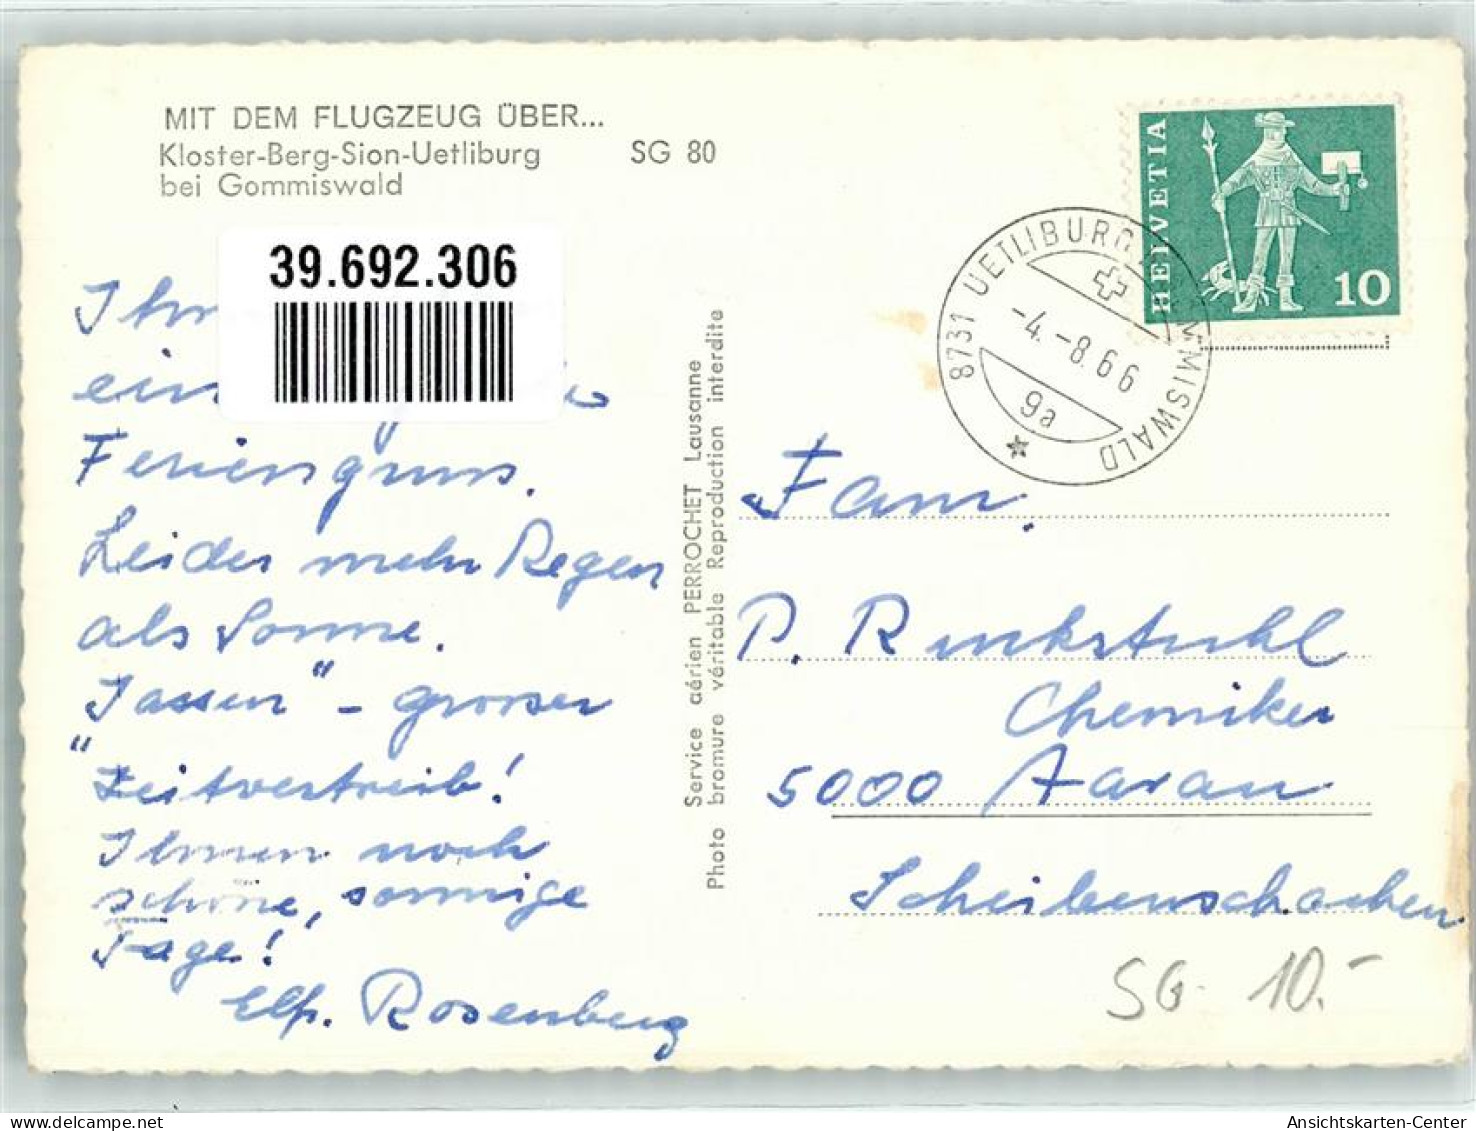 MIT DEM FLUGZEUG ÜBER...
Kloster-Berg-Sion-Uetliburg SG 80
bei Gommiswald
39.692.306
Feriengruss.
Leider mehr Regen
als Sonne.
"Jassen" - grosser
Zeitvertreib!
Ihnen noch
schöne, sonnige
Tage!
Elf. Rosenberg
Service aérien PERROCHET Lausanne
Photo bromure véritable Reproduction interdite
HELVETIA
10
8731 UETLIBURG GOMMISWALD
-4.-8.66
9a
Fam.
P. Ruckstuhl
Chemiker
5000 Aarau
Scheibenschachen
SG 10.-
Ansichtskarten-Center